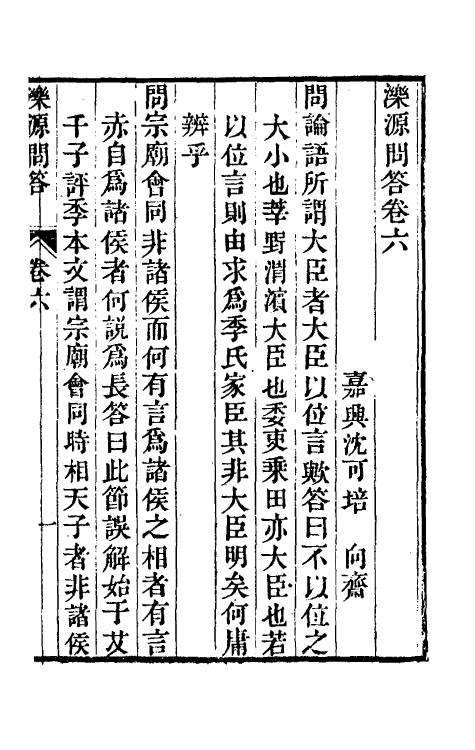 濼源問答卷六
嘉興沈可培 向齋
問論語所謂大臣者大臣以位言歟答曰不以位之
大小也莘野渭濱大臣也委吏乘田亦大臣也若
以位言則由求爲季氏家臣其非大臣明矣何庸
辨乎
問宗廟會同非諸侯而何有言爲諸侯之相者有言
赤自爲諸侯者何說爲長答曰此節誤解始于艾
千子評季本文謂宗廟會同時相天子者非諸侯
濼源問答 卷六 一